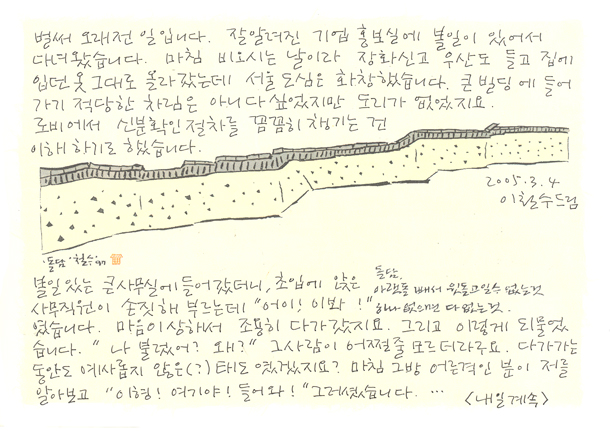 벌써 오래전 일입니다. 잘알려진 기업 홍보실에 볼일이 있어서
다녀왔습니다. 마침 비오시는 날이라 장화신고 우산도 들고 집에
입던 옷 그대로 올라갔는데 서울 도심은 화창했습니다. 큰 빌딩에 들어
가기 적당한 차림은 아니다 싶었지만 도리가 없었지요.
로비에서 신분확인 절차를 꼼꼼히 챙기는 건
이해하기로 했습니다.
2005. 3. 4
이철수드림
'돌담' 철수
볼일 있는 큰사무실에 들어갔더니, 초입에 앉은
사무직원이 손짓해 부르는데 "어이! 이봐!"
였습니다. 마음이상해서 조용히 다가갔지요. 그리고 이렇게 되물었
습니다. "나 불렀어? 왜?" 그사람이 어쩔줄 모르더라구요. 다가가는
동안도 예사롭지 않은(?) 태도였겠지요? 마침 그방 어른격인 분이 저를
알아보고 "이형! 여기야! 들어와!" 그러셨습니다. …
돌담.
아랫돌 빼서 윗돌고일수 없는것
하나 없으면 다 없는것.
<내일계속>